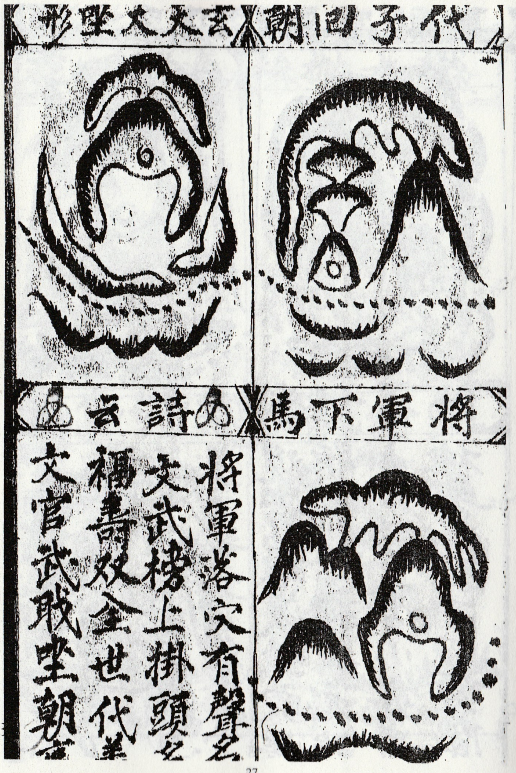 代子回朝
玄天大坐形
將軍下馬
詩云
將軍落穴有聲名
文武榜上掛頭名
福壽双全世代
文官武職坐朝
27